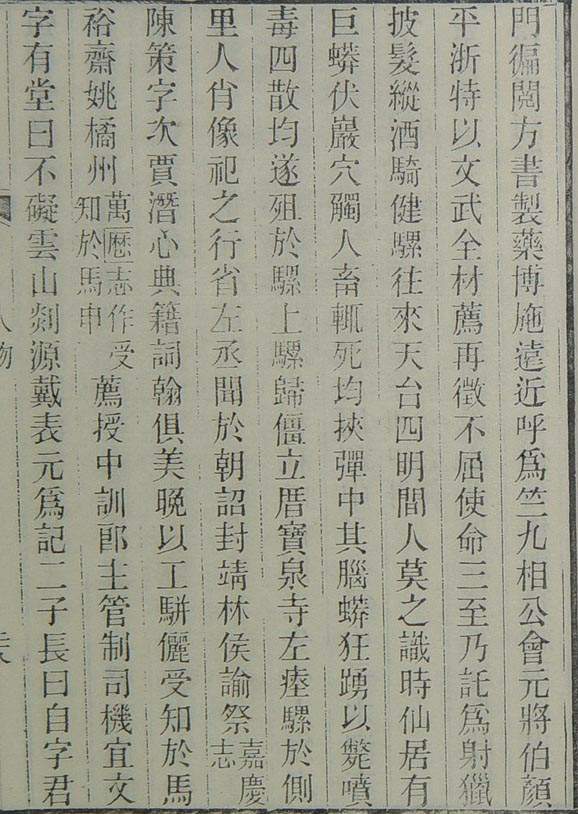 門徧閱方書製藥博施遠近呼爲竺九相公會元將伯顏
平浙特以文武全材薦再徵不屈使命三至乃託爲射獵
披髮縱酒騎健騾往來天台四明間人莫之識時仙居有
巨蟒伏巖穴觸人畜輒死均挾彈中其腦蟒狂踴以斃噴
毒四散均遂殂於騾上騾歸僵立厝寶泉寺左瘞騾於側
里人肖像祀之行省左丞聞於朝詔封靖林侯諭祭嘉慶志
陳策字次賈潛心典籍詞翰俱美晚以工駢儷受知於馬
裕齋姚橘州萬歷志作受知於馬申薦授中訓郎主管制司機宜文
字有堂曰不礙雲山剡源戴表元爲記二子長曰自字君
人物